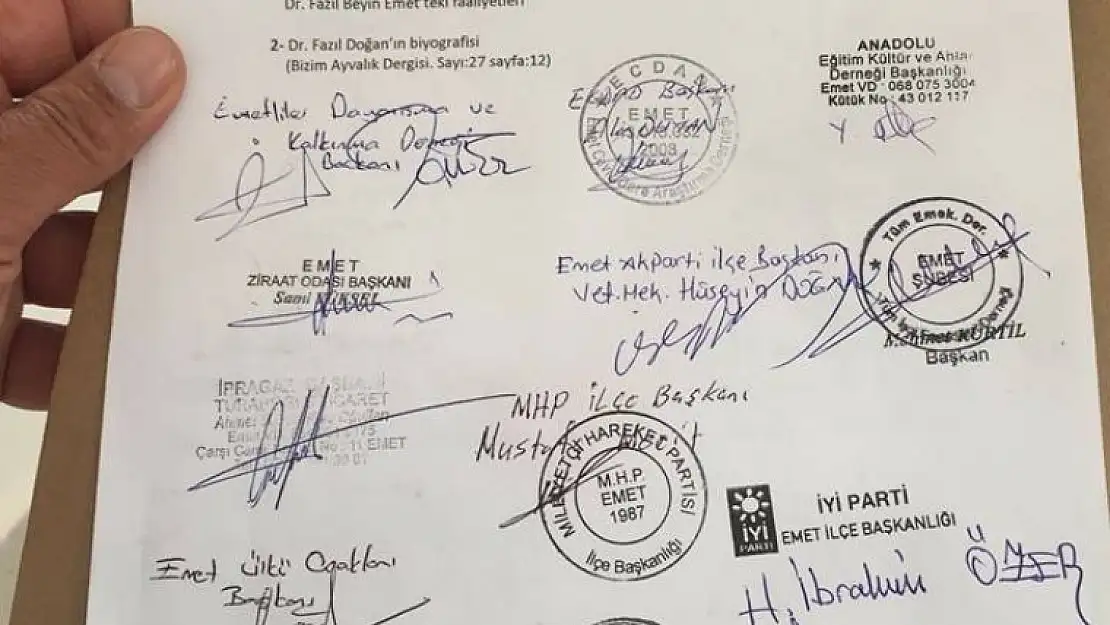 Dr. Fazıl Beyin Emet'teki faaliyetleri
2- Dr. Fazıl Doğan'ın biyografisi
(Bizim Ayvalık Dergisi. Sayı:27 sayfa:12)
Emetliler Dayanışma ve
Kalkınma Derneği
Başkanı
ECDAD Başkanı
ECDAD
EMET
2008
Araştırma Derneği
ANADOLU
Eğitim Kültür ve Ahla
Derneği Başkanlığı
Emet VD : 068 075 3004
Kütük No : 43 012 117
EMET
ZİRAAT ODASI BAŞKANI
Sami
Emet Akparti ilçe Başkanı
Vet. Hek. Hüseyin DOĞAN
Tüm Emek. Der.
EMET
ŞUBESİ
Mehmet KURTİL
Başkan
İPRAGAZ
EMET
MHP İLÇE Başkanı
MİLLİYETÇİ HAREKET PARTİSİ
M.H.P.
EMET
1987
İlçe Başkanlığı
İYİ
PARTİ
İYİ PARTİ
EMET İLÇE BAŞKANLIĞI
H. İbrahim ÖZER
Emet Ülkü Ocakları
Başkanı